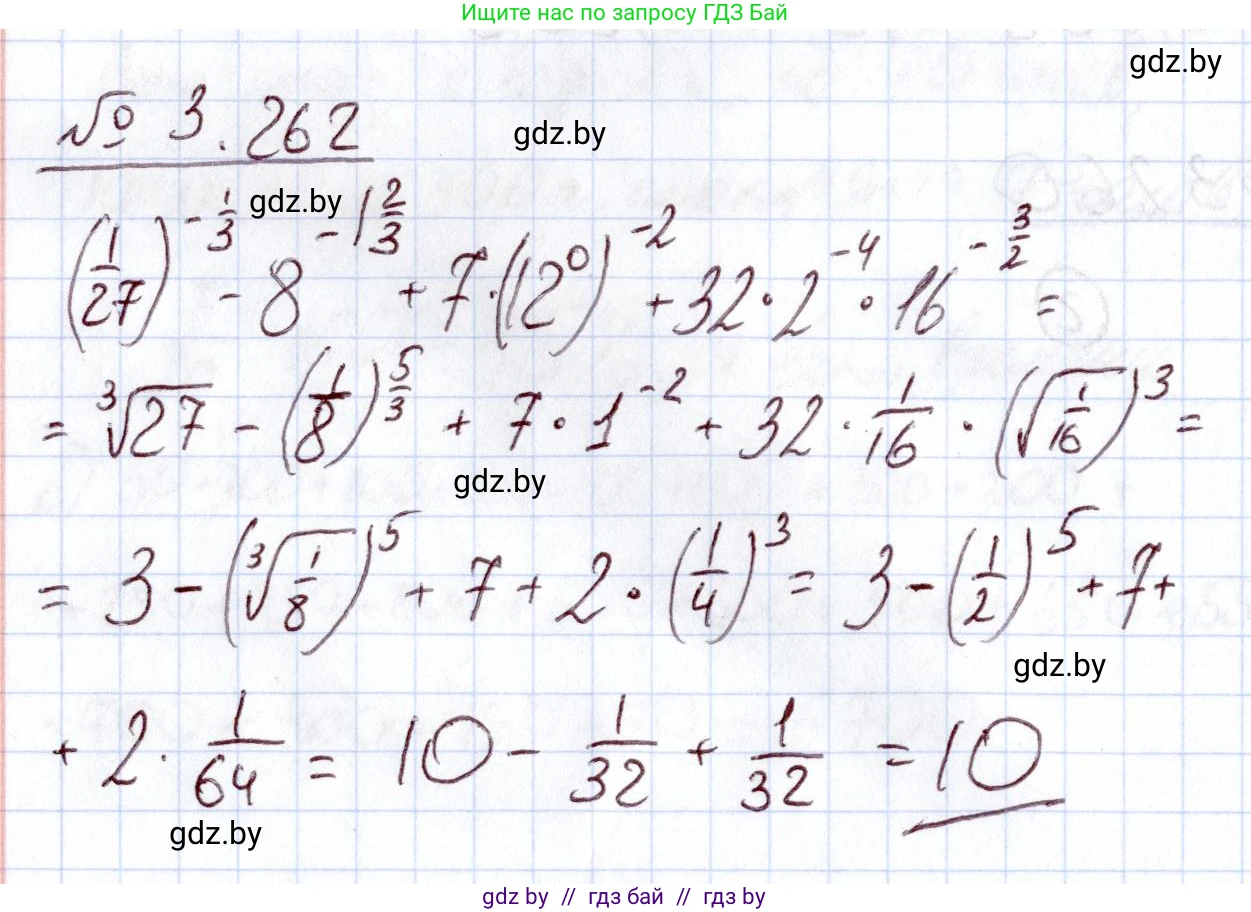 Ищите нас по запросу ГДЗ Бай
gdz.by
№ 3.262
gdz.by
gdz.by
(1/27)^(-1/3) - 8^(-1 2/3) + 7·(12^0)^(-2) + 32·2^(-4)·16^(-3/2) =
= ∛27 - (1/8)^(5/3) + 7·1^(-2) + 32·1/16·(√(1/16))^3 =
gdz.by
= 3 - (∛(1/8))^5 + 7 + 2·(1/4)^3 = 3 - (1/2)^5 + 7 +
gdz.by
+ 2·1/64 = 10 - 1/32 + 1/32 = 10
gdz.by
gdz by // гдз бай // гдз by